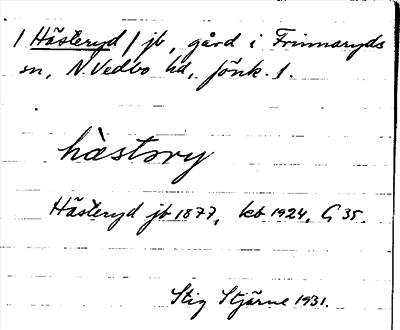 / Hästeryd / jb, gård i Frinnaryds
sn, N. Vedbo hd, Jönk. l.
hàstəry
Hästeryd jb 1877, kb 1924, G 35.
Stig Stjärne 1931.